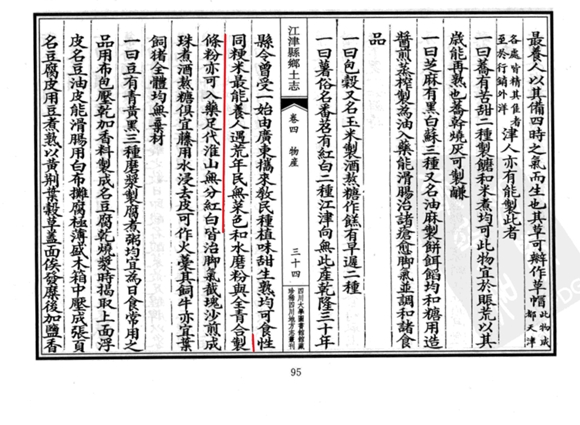 最養人以其備四時之氣而生也其草可辮作草帽此物成都天津
各處皆精其佳者至於行銷外洋津人亦有能製此者
一曰蕎有苦甜二種製麵和米煮均可此物宜於賬荒以其
歲能再熟也蕎幹燒灰可製鹻
一曰芝麻有黑白蘇三種又名油麻製餅餌餡均和糖用造
醬煎蒸榨製為油入藥能滑腸治諸瘡愈腳氣並調和諸食
品
一曰包穀又名玉米製酒熬糖作餻有早遲二種
一曰薯俗名番苕有紅白二種江津向無此產乾隆三十年
江津縣鄉土志
卷四 物產
三十四
四川大學圖書館館藏
珍稀四川地方志叢刊
縣令曾受一始由廣東攜來教民種植味甜生熟均可食性
同粳米最能養人遇荒年民無菜色和水磨粉與全青合製
條粉亦可入藥足代淮山無分紅白皆治腳氣截瑰沙煎成
珠煮酒熬糖俱宜藤用水浸去皮可作火薹真飼牛亦宜葉
飼猪全體均無棄材
一曰豆有青黃黑三種磨漿製腐煮粥均宜為日食常用之
品用布包壓乾加香料製成名豆腐乾燒漿時揭取上面浮
皮名豆油皮能滑腸用白布攤腐極薄盛木箱中壓成張頁
名豆腐皮用豆煮熟以黄荆葉穀草蓋面俟發黴後加鹽香
95